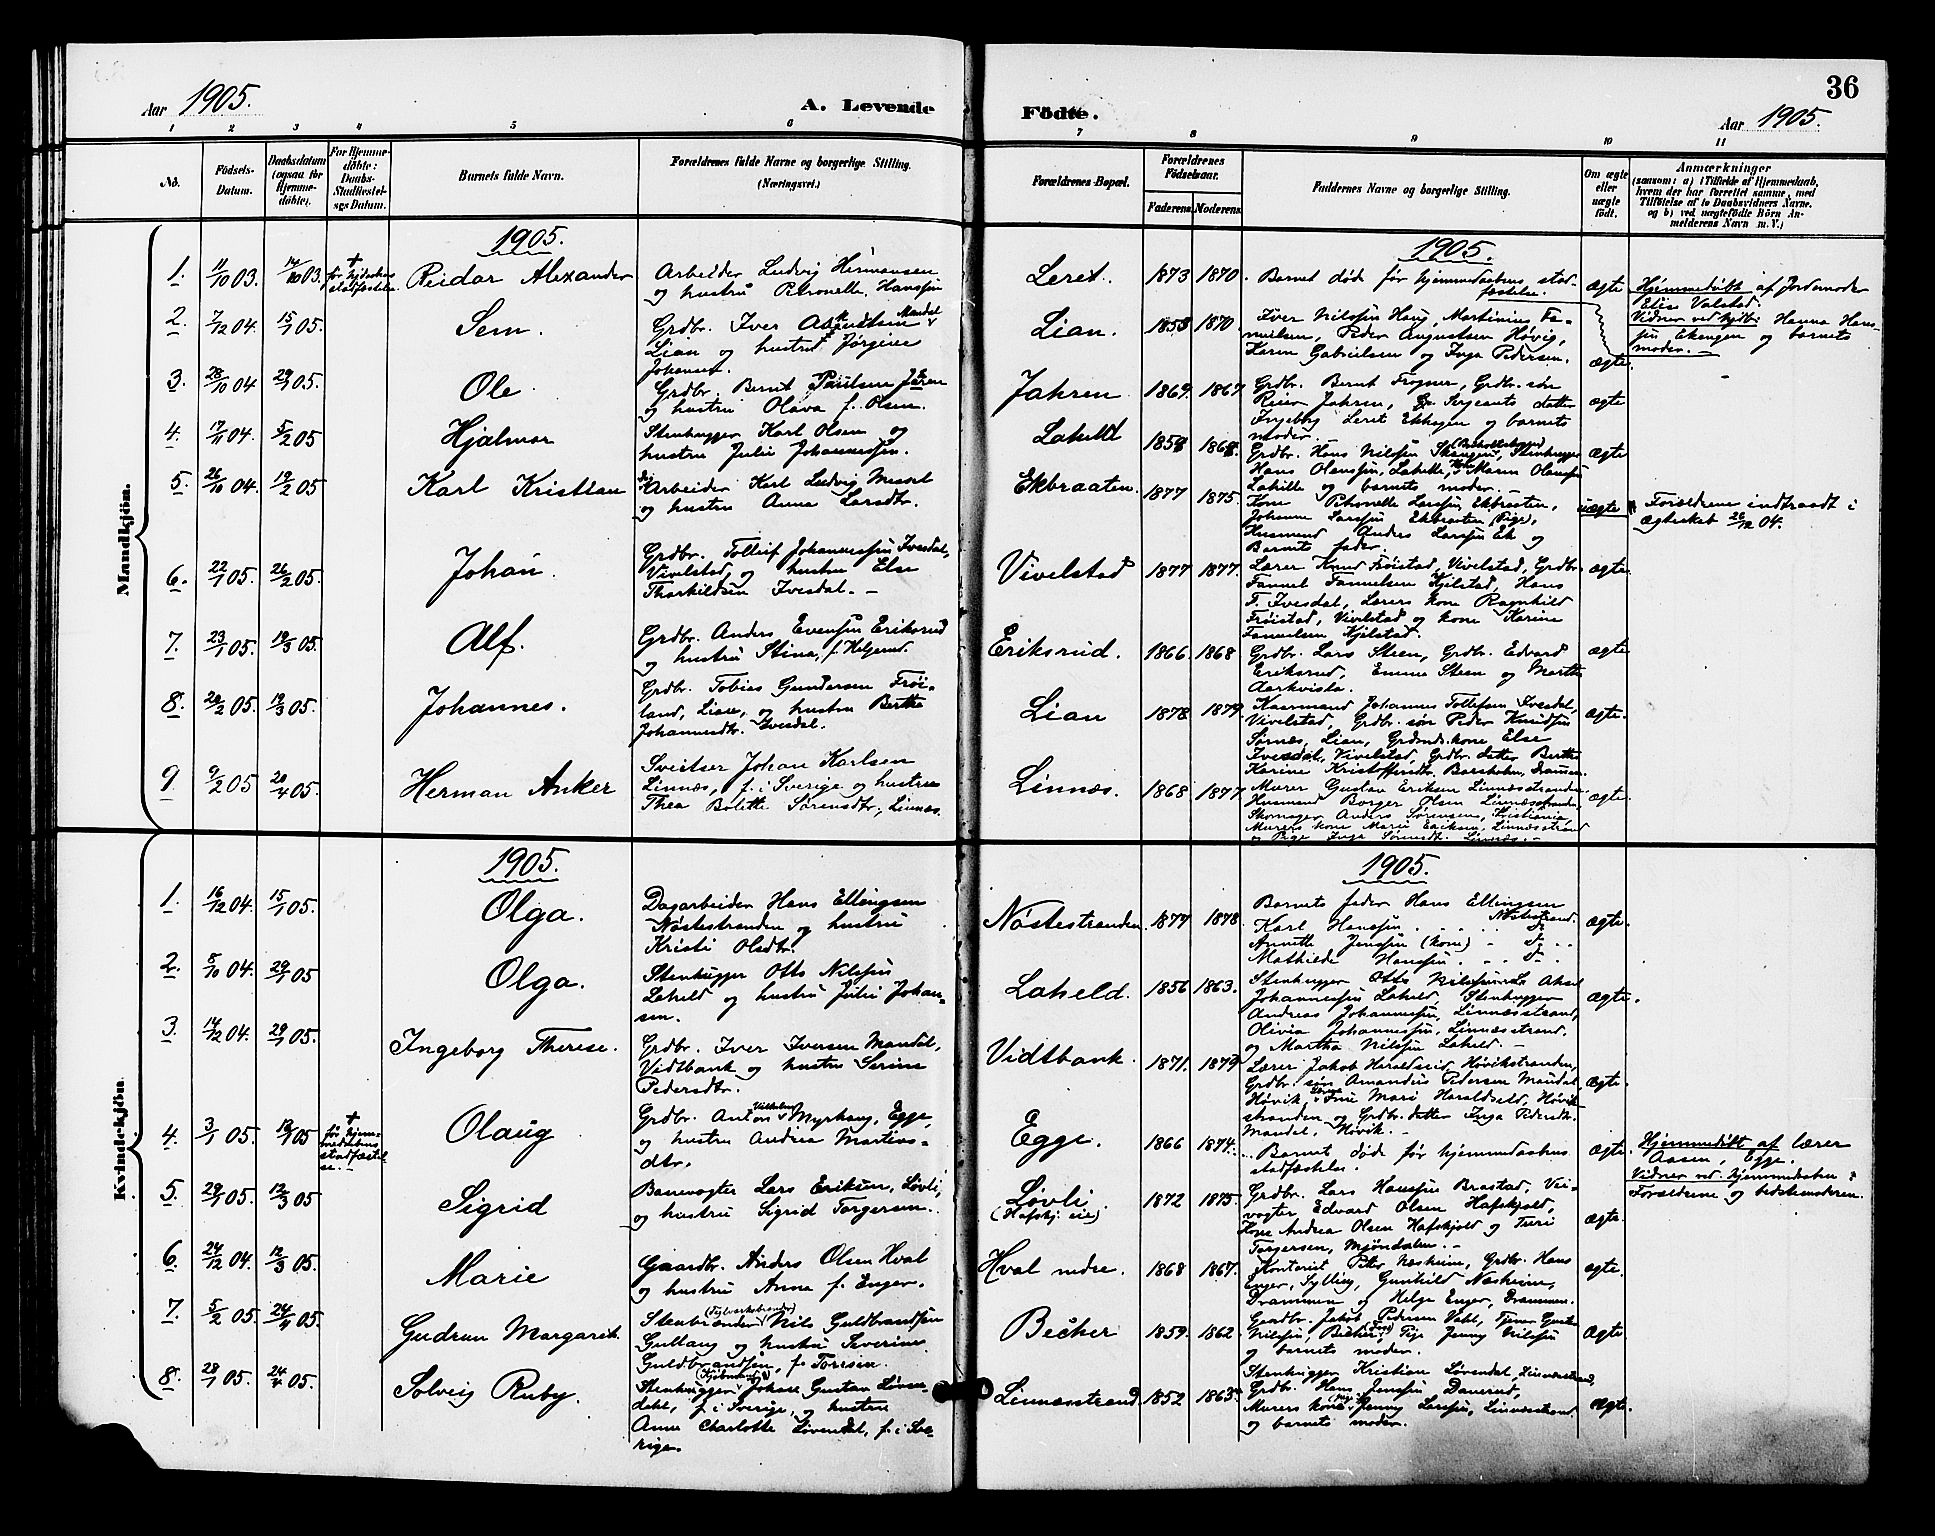 Aar 1905.
A. Levende
Födte.
36
Aar 1905.
1 2 3 4 5 6 7 8 9 10 11
No.
Födsels-Datum.
Daabsdatum (ogsaa for Hjemmedöbte).
For Hjemmedöbte: Daabs-Stadfæstelses Datum.
Barnets fulde Navn.
Forældrenes fulde Navne og borgerlige Stilling.
(Næringsvei.)
Forældrenes Bopæl.
Forældrenes Födselsaar.
Faderens. Moderens.
Faddernes Navne og borgerlige Stilling.
Om ægte eller uægte födt.
Anmærkninger
(saasom: a) i Tilfælde af Hjemmedaab, hvem der har forrettet samme, med Tilföielse af to Daabsvidners Navne. og b) ved uægtefödte Börn Anmelderens Navn m. V.)
Mandkjön.
1905.
1905.
1. 11/10 03. 14/10 03. † før hjdaabens stadfæstelse. Reidar Alexander
Arbeider Ludvig Hermansen
og hustru Petronelle Hanssen
Leret. 1873 1870.
Barnet døde før hjemmedaabens stadfæstelse.
ægte
Hjemmedøbt af Jordemoder
Elise Valstad.
Vidner ved hjdb: Hanna Hanssen Ekengen og barnets
moder.
2. 7/12 04. 15/1 05. Sem.
Grdbr. Iver Augustsen Mandal
Lian og hustru Jørgine
Johansen.
Lian. 1858 1870
Iver Nilssen Haug, Martinius Samuelsen, Peder Augustsen Høvig,
Karen Gabrielsen og Inga Pedersen.
ægte.
3. 28/10 04 29/1 05. Ole.
Grdbr. Bernt Paulsen Jaren
og hustru Olava f. Olsen.
Jahren. 1869. 1867
Grdbr. Bernt Frogner, Grdbr. søn
Reier Jahren, Sergeants datter
Ingeborg Leret Ekhagen og barnets
moder.
ægte
4. 17/11 04. 5/2 05 Hjalmar
Stenhugger Karl Olsen og
hustru Julie Johannessen.
Lahelld 1858 1868.
Grdbr. Hans Nilssen Skangen, Stenhugger
Hans Olanssen, Lahelle, Maren Olanssen
Lahille og barnets moder.
ægte
5. 26/10 04. 19/2 05 Karl Kristian
Arbeider Karl Ludvig Messel
og hustru Anna Larsdtr.
Ekbraaten. 1877 1875.
Kone Petronelle Larssen Ekbraaten,
Johanne Larssen Ekbraaten (Pige),
Husmand Anders Larssen Ek og
Barnets fader.
uægte
Forældrene indtraadt i
ægteskab 26/12 04.
6. 22/1 05. 26/2 05. Johan.
Grdbr. Tolleif Johannessen Ivesdal,
Vivelstad, og hustru Else
Thorkildsen Ivesdal. –
Vivelstad 1877 1877.
Lærer Knud Frøistad, Vivelstad, Grdbr.
Fannel Fannelsen Kjelstad, Hans
T. Ivesdal, Lærers kone Ragnhild
Frøistad, Vivelstad og kone Karine
Fannelsen Kjelstad.
ægte.
7. 23/1 05. 19/3 05. Alf.
Grdbr. Anders Evensen Eriksrud
og hustru Stina, f. Helgerud.
Eriksrud. 1866 1868
Grdbr. Lars Steen, Grdbr. Edvard
Eriksrud, Emma Steen og Marthe
Aarkvisla.
ægte
8. 20/2 05. 19/3 05. Johannes.
Grdbr. Tobias Gundersen Frøiland, Lian, og hustru Berthe
Johannesdtr. Ivesdal.
Lian 1878 1879.
Kaarmand Johannes Tollefsen Ivesdal,
Vivelstad, Grdbr. søn Peder Knudsen
Sørnæs, Lian, Grdmds. kone Else
Ivesdal, Vivelstad, Grdbr. datter Berthe
Karine Kristoffersdtr. Borsholm, Drammen.
ægte.
9. 9/2 05 20/4 05. Herman Anker
Sveitser Johan Karlsen
Linnæs, f. i Sverige og hustru
Thea Bolette Sørensdtr., Linnæs.
Linnæs. 1868 1877
Murer Gustav Eriksen Linnæsstranden,
Husmand Borger Olsen Linnæsstranden,
Skomager Anders Sørensen, Kristiania,
Murers kone Marie Eriksen, Linnæsstrand
og Pige Inga Sørensdt. Linnæs.
ægte.
Kvindekjön.
1905.
1905.
1. 16/12 04. 15/1 05. Olga.
Dagarbeider Hans Ellingsen
Nøstestranden og hustru
Kristi Olsdtr.
Nøstestranden. 1877 1878.
Barnets fader Hans Ellingsen
Karl Hanssen . . Nøstestrand.
Annette Jenssen (kone) - do . .
Mathilde Hanssen . . do - .
ægte.
2. 8/10 04. 29/1 05 Olga.
Stenhugger Otto Nilssen
Laheld og hustru Julie Johansen.
Laheld. 1856 1863.
Stenhugger Otto Nilssen, Aksel
Johannessen Laheld, Stenhugger
Andreas Johannessen, Linnæsstrand,
Olivia Johannessen, Linnæsstrand.
og Martha Nilssen Laheld. –
ægte.
3. 14/12 04. 29/1 05. Ingeborg Therese.
Grdbr. Iver Iversen Mandal,
Vidtbank og hustru Serine
Pedersdtr.
Vidtbank. 1871. 1879
Lærer Jakob Haraldseid, Høvikstranden,
Grdbr. søn Amandus Pedersen Mandal,
Høvik, Frue Mari Haraldseid, Høvikstranden og Grdbr. datter Inga Pedersdt.
Mandal, Høvik. –
ægte.
4. 3/1 05. 18/1 05 † før hjemmedaabens stadfæstelse. – Olaug
Grdbr. Anton Vilhelm Myrhaug, Egge,
og hustru Andrea Martinsdtr.
Egge. 1866 1874.
Barnet døde før hjemmedaabens
stadfæstelse.
ægte.
Hjemmedøbt af lærer
Aasen Egge.
Vidner ved hjemmedaaben:
Forældrene og bedstemoderen.
5. 29/1 05. 12/3 05 Sigrid
Banevogter Lars Eriksen, Løvli,
og hustru Sigrid Torgersen.
Løvli
(Hafskj. eie) 1872 1875.
Grdbr. Lars Hanssen Brastad, Veivogter Edvard Olsen Hafskjold,
Kone Andrea Olsen Hafskjold og Turi
Torgersen, Mjøndalen. –
ægte.
6. 24/12 04. 12/3 05. Marie
Gaardbr. Anders Olsen Hval
og hustru Anna f. Enger.
Hval nedre. 1868 1867.
Kontorist Peter Næsheim, Grdbr. Hans
Enger, Sylling, Gunhild Næsheim,
Drammen og Helga Enger, Drammen.
ægte.
7. 5/2 05. 24/4 05. Gudrun Margareth.
Stenbrænder (Teglværksbrænder) Nils Guldbrandsen
Gullaug og hustru Severine
Guldbrandsen, f. Torrsen.
Becher 1859. 1862
Gaardbr. Jakob Pedersen Vahl, Tjener Gusta
Nilssen, Becher, Pige Jenny Nilssen
og barnets moder.
ægte.
8. 28/1 05. 24/4 05. Solveig Ruby.
Stenhugger Johan Gustav Løvendahl, f. i Sverige, og hustru
Anna Charlotte Løvendal, f. i Sverige.
Linnæsstrand 1852 1863.
Stenhugger Kristian Løvendal, Linnæsstrand,
Grdbr. Hans Jenssen Danerud,
Murers kone Jenny Larssen, Linnæsstrand.
og barnets moder.
ægte.